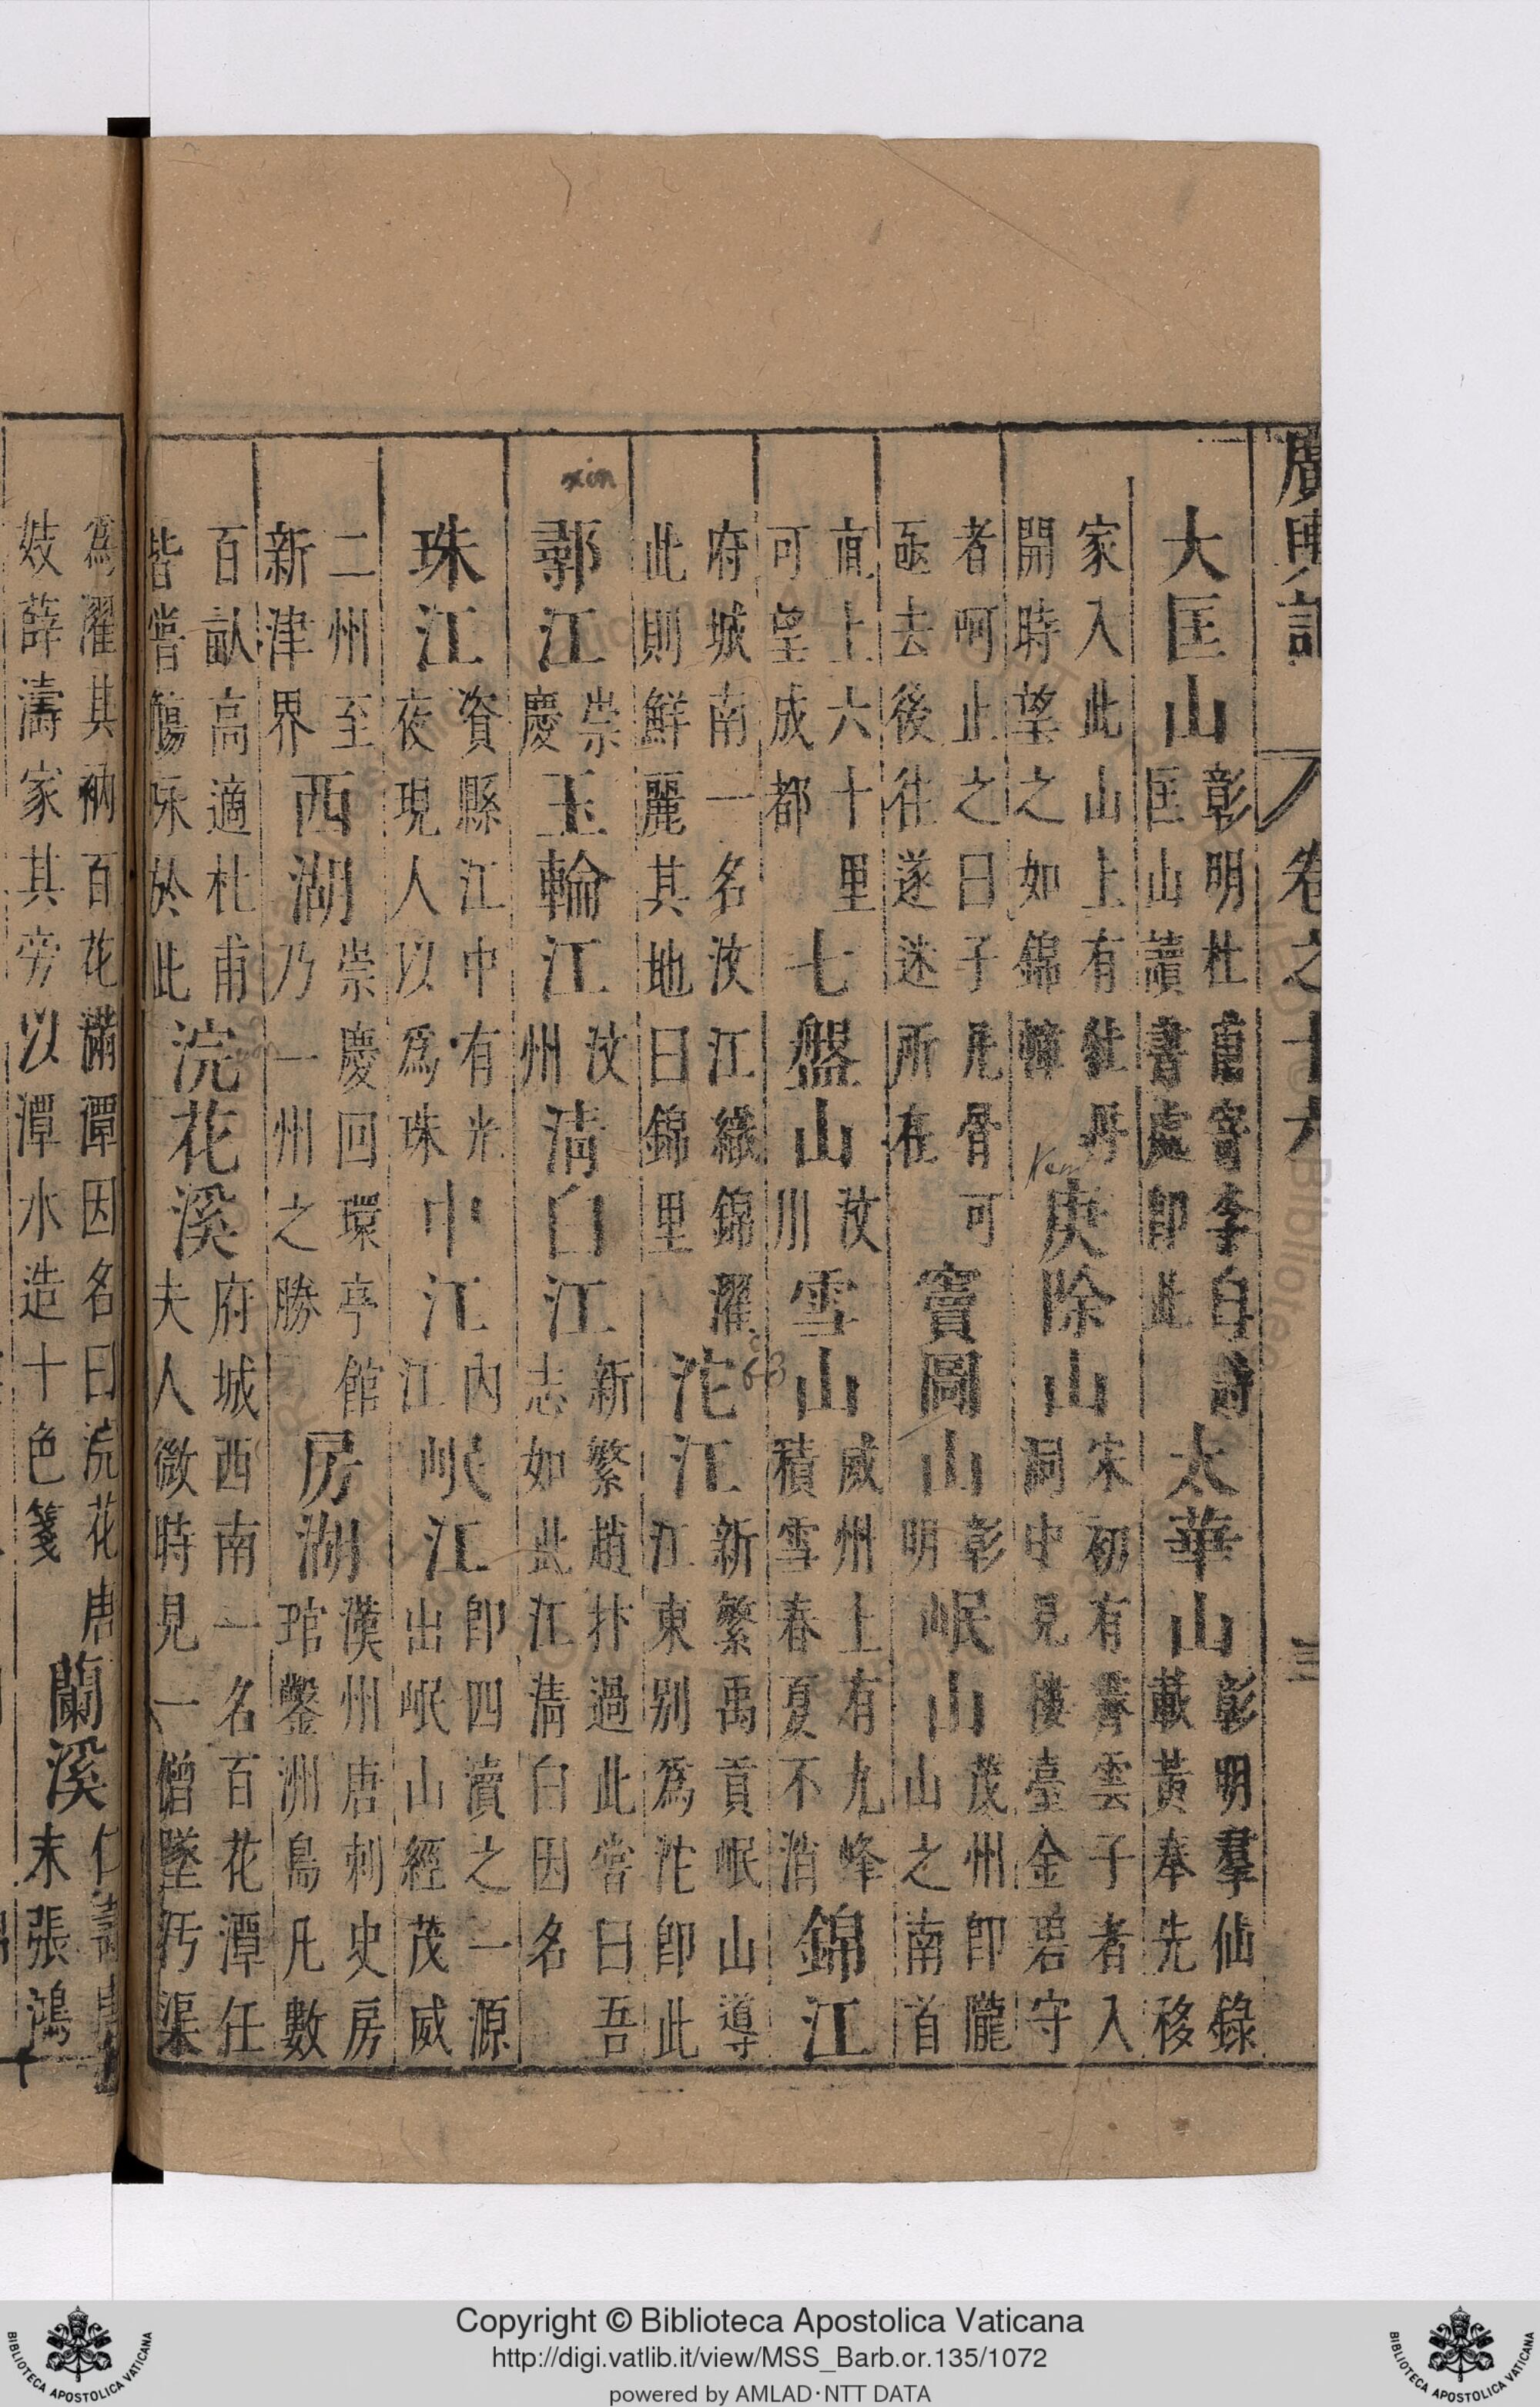 廣輿記 卷之十六 三
大匡山 彰明杜唐寄李白詩匡山讀書處即此 太華山 彰明羣仙錄載黃奉先移
家入此山上有牡丹開時望之如錦幛 庚除山 宋初有青雲子者入洞中見樓臺金碧守
者呵止之曰子凡骨可亟去後徃遂迷所在 竇圌山 彰明 岷山 茂州即隴山之南首
直上六十里可望成都 七盤山 汶川 雪山 威州上有九峰積雪春夏不消 錦江
府城南一名汶江織錦濯此則鮮麗其地曰錦里 沱江 新繁禹貢岷山導江東別爲沱即此
䣢江 崇慶 玉輪江 汶州 淸白江 新繁趙抃過此嘗曰吾志如此江淸白因名
珠江 資縣江中有光夜現人以爲珠 中江 內江 岷江 即四瀆之一源出岷山經茂威
二州至新津界 西湖 崇慶回環亭館乃一州之勝 房湖 漢州唐刺史房琯鑿洲鳥凡數
百畝高適杜甫皆嘗觴咏於此 浣花溪 府城西南一名百花潭任夫人微時見一僧墜汚渠
爲濯其衲百花滿潭因名曰浣花唐妓薛濤家其旁以潭水造十色箋 蘭溪 仁壽末張鴻
xin
63
Copyright © Biblioteca Apostolica Vaticana
http://digi.vatlib.it/view/MSS_Barb.or.135/1072
powered by AMLAD·NTT DATA
BIBLIOTECA APOSTOLICA VATICANA
BIBLIOTECA APOSTOLICA VATICANA